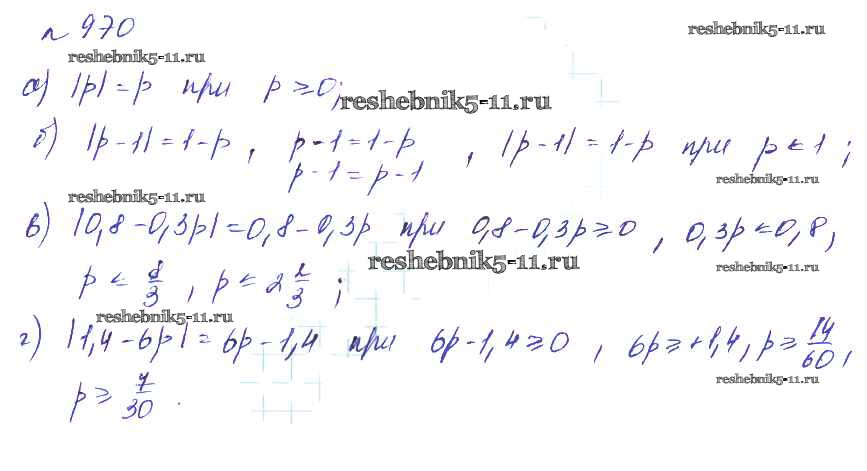 № 970
reshebnik5-11.ru
reshebnik5-11.ru
а) |p| = p при p ≥ 0;
reshebnik5-11.ru
б) |p - 1| = 1 - p, p - 1 = 1 - p, |p - 1| = 1 - p при p ≤ 1;
p - 1 = p - 1
reshebnik5-11.ru
reshebnik5-11.ru
в) |0,8 - 0,3p| = 0,8 - 0,3p при 0,8 - 0,3p ≥ 0, 0,3p ≤ 0,8,
reshebnik5-11.ru
reshebnik5-11.ru
p ≤ 8/3, p ≤ 2 2/3;
reshebnik5-11.ru
г) |1,4 - 6p| = 6p - 1,4 при 6p - 1,4 ≥ 0, 6p ≥ +1,4, p ≥ 14/60,
reshebnik5-11.ru
p ≥ 7/30.